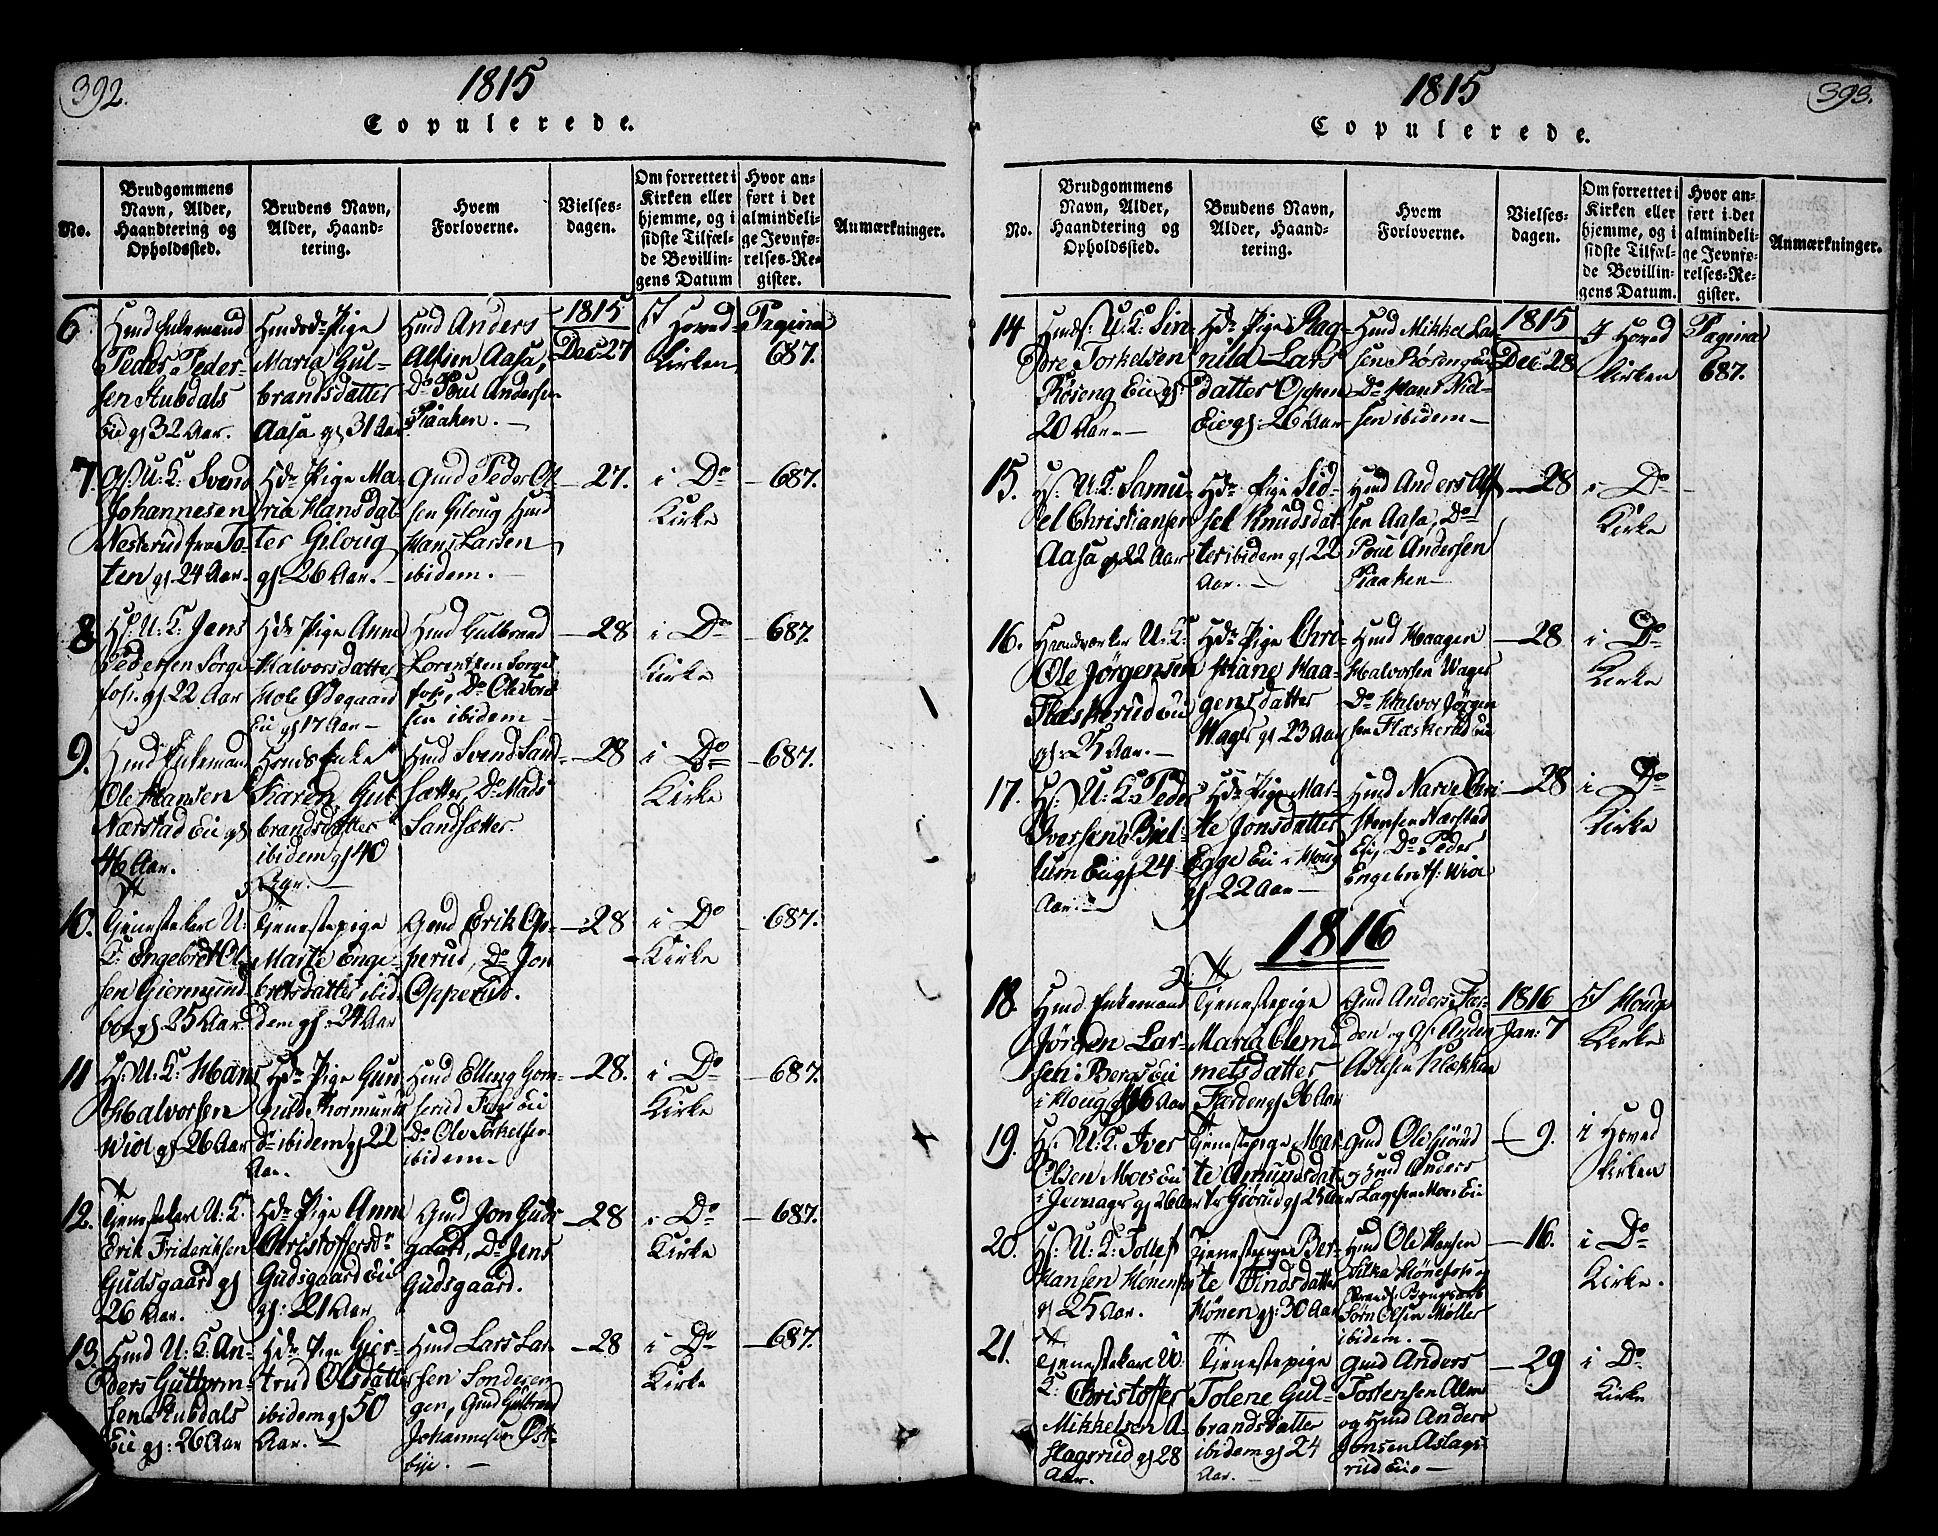 392.
1815
Copulerede.
No.
Brudgommens
Navn, Alder,
Haandtering og
Opholdssted.
Brudens Navn,
Alder, Haand-
tering.
Hvem
Forloverne.
Vielses-
dagen.
Om forrettet i
Kirken eller
hjemme, og i
sidste Tilfæl-
de Bevillin-
gens Datum
Hvor an-
ført i det
almindeli-
ge Jevnfø-
relses-Re-
gister.
Anmærkninger.
6
Huusmd Enkemand
Peder Peder-
sen Stubdals
Eie gl 32 Aar.
Pige
Maria Gul-
brandsdatter
Aasa gl 31 Aar
Hmd Anders
Alfsen Aasa,
Do Poul Andersen
Piaaken.
1815
Dec: 27
I Hoved
Kirken
Pagina
687.
7.
U: K: Svend
Johannesen
Næsterud fra To-
ten gl. 24 Aar.
Pige Ma-
ria Hansdat-
ter Giloug
gl. 26 Aar.
Gmd Peder Ol-
sen Giloug Hmd
Hans Larsen
ibidem.
27.
i Do
Kirke
687.
8
U: K: Jens
Pedersen Sørge-
fos. gl 22 Aar
Pige Anne
Halvorsdatter
Hole Ødegaard
Eie gl 17 Aar
Hmd Gulbrand
Lorentsen Sørge-
fos, Do Ole
sen ibidem
28
i Do
Kirke
687.
9.
Hmd Enkemand
Ole Hansen
Nærstad Eie gl
46 Aar.
Enke
Karen Gul-
brandsdatter
ibidem gl 40
Aar.
Hmd Svend Sand-
sætter, Do Mads
Sandsætter.
28
i Do
Kirke
687.
10.
Tjenestekarl U:
K: Engebret Ol-
sen Giermund-
boe gl 25 Aar.
Tjenestepige
Marte Enge-
bretsdatter ibi-
dem gl. 24 Aar
Gmd Erik Op-
perud, Do Jon
Opperud.
28
i Do
Kirke
687.
11
U: K: Hans
Halvorsen
Wiol gl 26 Aar
Pige Gun-
nild Thormunds
dr ibidem gl 22
Aar.
Hmd Elling Gom-
serud Eie
Do Ole Torkelsen
ibidem.
28.
i Do
Kirke
687.
12.
Tjenestekarl U: K.
Erik Frideriksen
Gudsgaard gl
26 Aar.
Pige Anne
Christoffersdr
Gudsgaard Eie
gl: 21 Aar
Gmd Jon Guds-
gaard, Do Jens
Gudsgaard.
28
i Do
Kirke
687.
13.
Hmd U: K An-
ders Guttorm-
sen Stubdals
Eie gl: 26 Aar
Pige Gier-
trud Olsdatter
ibidem gl 50
Aar.
Hmd Lars Lar-
sen Sonderen-
gen, Gmd Gulbrand
Johannesen Øst-
bye.
28
i Do
Kirke
687.
393.
1815
Copulerede.
No.
Brudgommens
Navn, Alder,
Haandtering og
Opholdssted.
Brudens Navn,
Alder, Haand-
tering.
Hvem
Forloverne.
Vielses-
dagen.
Om forrettet i
Kirken eller
hjemme, og i
sidste Tilfæl-
de Bevillin-
gens Datum.
Hvor an-
ført i det
almindeli-
ge Jevnfø-
relses-Re-
gister.
Anmærkninger.
14
U: K: Sin-
dre Torkelsen
Røseng Eie gl:
20 Aar.
Pige Rag-
nild Lars
datter Oppen
Eie gl: 26 Aar
Hmd Mikkel Lar-
sen Røseng Eie
Do Hans Niel-
sen ibidem
1815
Dec: 28
I Hoved
Kirken
Pagina
687.
15.
U: K: Samu-
el Christiansen
Aasa gl 22 Aar
Pige Sid-
sel Knudsdat-
ter ibidem gl 22
Aar.
Hmd Anders Alf-
sen Aasa, Do
Poul Andersen
Piaaken
28
i Do
Kirke
16.
Haandværker U: K:
Ole Jörgensen
Flaskerud Eie
gl: 25 Aar.
Pige Chri-
stiane Haa-
gensdatter
Wager gl 23 Aar
Hmd Haagen
Halvorsen Wager
Do Halvor Jörgen
sen Flaskerud Eie
28
i Do
Kirke
17.
U: K: Peder
Iversen Biel-
lum Eie gl 24
Aar.
Pige Mar-
te Jonsdatter
Enge Eie i Houg
gl 22 Aar
Hmd Narve Chri
stensen Nærstad
Eie, Do Peder
Engebrets: Wiol
28
i Do
Kirke
1816
18.
Hmd Enkemand
Jörgen Lar-
sen Bergs Eie
i Houg gl 46 Aar
Tjenestepige
Maria Clem-
metsdatter
Færden gl 26 Aar
Gmd Anders Fær-
den og
Klækken
1816
Jan: 7
I Houg
Kirke
19.
U: K. Iver
Olsen Moes Eie
i Jevnager gl 26 Aar
Tjenestepige Mar-
te Amundsdat-
ter Giörud gl 25 Aar
Gmd Ole Giörud
og Hmd Anders
Moes Eie
9.
i Hoved
Kirken
20.
U: K: Tollef
Hansen Hönefos
gl 25 Aar.
Tjenestepige Ber-
te Findsdatter
Hönen gl: 30 Aar
Hmd Ole Hansen
Hönefos og
Sörn Olsen Møller
ibidem.
16.
i Do
Kirke.
21.
Tjenestekarl U:
K: Christoffer
Mikkelsen A-
slagsrud gl 28
Aar.
Tjenestepige
Tolene Gul-
brandsdatter
ibidem gl 24
Aar.
Gmd Anders
Torstensen Alm
og Hmd Anders
Jonsen Aslags-
rud Eie
29
i Do
Kirke